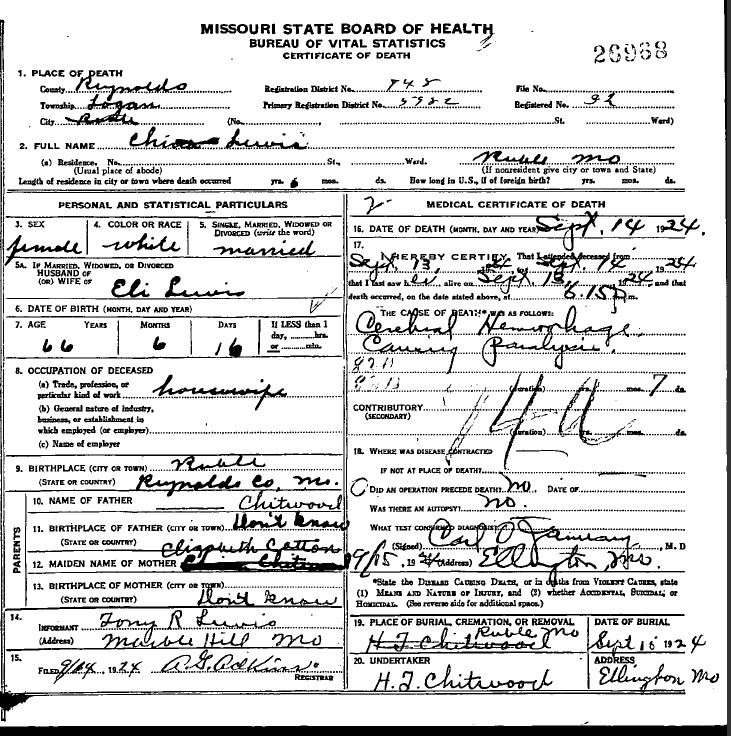 MISSOURI STATE BOARD OF HEALTH
BUREAU OF VITAL STATISTICS
CERTIFICATE OF DEATH
26968
1. PLACE OF DEATH
County Reynolds Registration District No. 748 File No.
Township Logan Primary Registration District No. 5982 Registered No. 92
City Ruble (No. St. Ward)
2. FULL NAME Lewis
(a) Residence. No. St., Ward. Ruble Mo
(Usual place of abode) (If nonresident give city or town and State)
Length of residence in city or town where death occurred yrs. 6 mos. ds. How long in U.S., if of foreign birth? yrs. mos. ds.
PERSONAL AND STATISTICAL PARTICULARS
3. SEX 4. COLOR OR RACE 5. SINGLE, MARRIED, WIDOWED OR DIVORCED (write the word)
female white married
5A. IF MARRIED, WIDOWED, OR DIVORCED
HUSBAND OF
(OR) WIFE OF Eli Lewis
6. DATE OF BIRTH (MONTH, DAY AND YEAR)
7. AGE YEARS MONTHS DAYS If LESS than 1 day, hrs. or min.
66 6 16
8. OCCUPATION OF DECEASED
(a) Trade, profession, or particular kind of work housewife
(b) General nature of industry, business, or establishment in which employed (or employer)
(c) Name of employer
9. BIRTHPLACE (CITY OR TOWN) Ruble
(STATE OR COUNTRY) Reynolds Co, Mo.
PARENTS
10. NAME OF FATHER Chitwood
11. BIRTHPLACE OF FATHER (CITY OR TOWN) Don't know
(STATE OR COUNTRY)
Elizabeth Cotton
12. MAIDEN NAME OF MOTHER
13. BIRTHPLACE OF MOTHER (CITY OR TOWN)
(STATE OR COUNTRY) Don't know
14. INFORMANT Tony R Lewis
(Address) Marble Hill Mo
15. FILED 9/24, 1924 R G Adkins REGISTRAR
2 MEDICAL CERTIFICATE OF DEATH
16. DATE OF DEATH (MONTH, DAY AND YEAR) Sept. 14 1924.
17.
I HEREBY CERTIFY, That I attended deceased from
Sept. 13, 24 Sept. 14 1924
that I last saw alive on Sept. 13, 1924, and that
death occurred, on the date stated above, at 6:15 P m.
THE CAUSE OF DEATH* WAS AS FOLLOWS:
Cerebral Hemorrhage
Causing Paralysis
82B
(duration) yrs. mos. 7 ds.
CONTRIBUTORY
(SECONDARY)
(duration) yrs. mos. ds.
18. WHERE WAS DISEASE CONTRACTED
IF NOT AT PLACE OF DEATH?
DID AN OPERATION PRECEDE DEATH? No. DATE OF
WAS THERE AN AUTOPSY? No.
WHAT TEST CONFIRMED DIAGNOSIS?
(Signed) Carl O January, M. D
9/15, 1924 (Address) Ellington, Mo.
*State the DISEASE CAUSING DEATH, or in deaths from VIOLENT CAUSES, state
(1) MEANS AND NATURE OF INJURY, and (2) whether ACCIDENTAL, SUICIDAL, or
HOMICIDAL. (See reverse side for additional space.)
19. PLACE OF BURIAL, CREMATION, OR REMOVAL DATE OF BURIAL
Ruble Mo
H. T. Chitwood Sept 16 1924
20. UNDERTAKER ADDRESS
H. T. Chitwood Ellington Mo